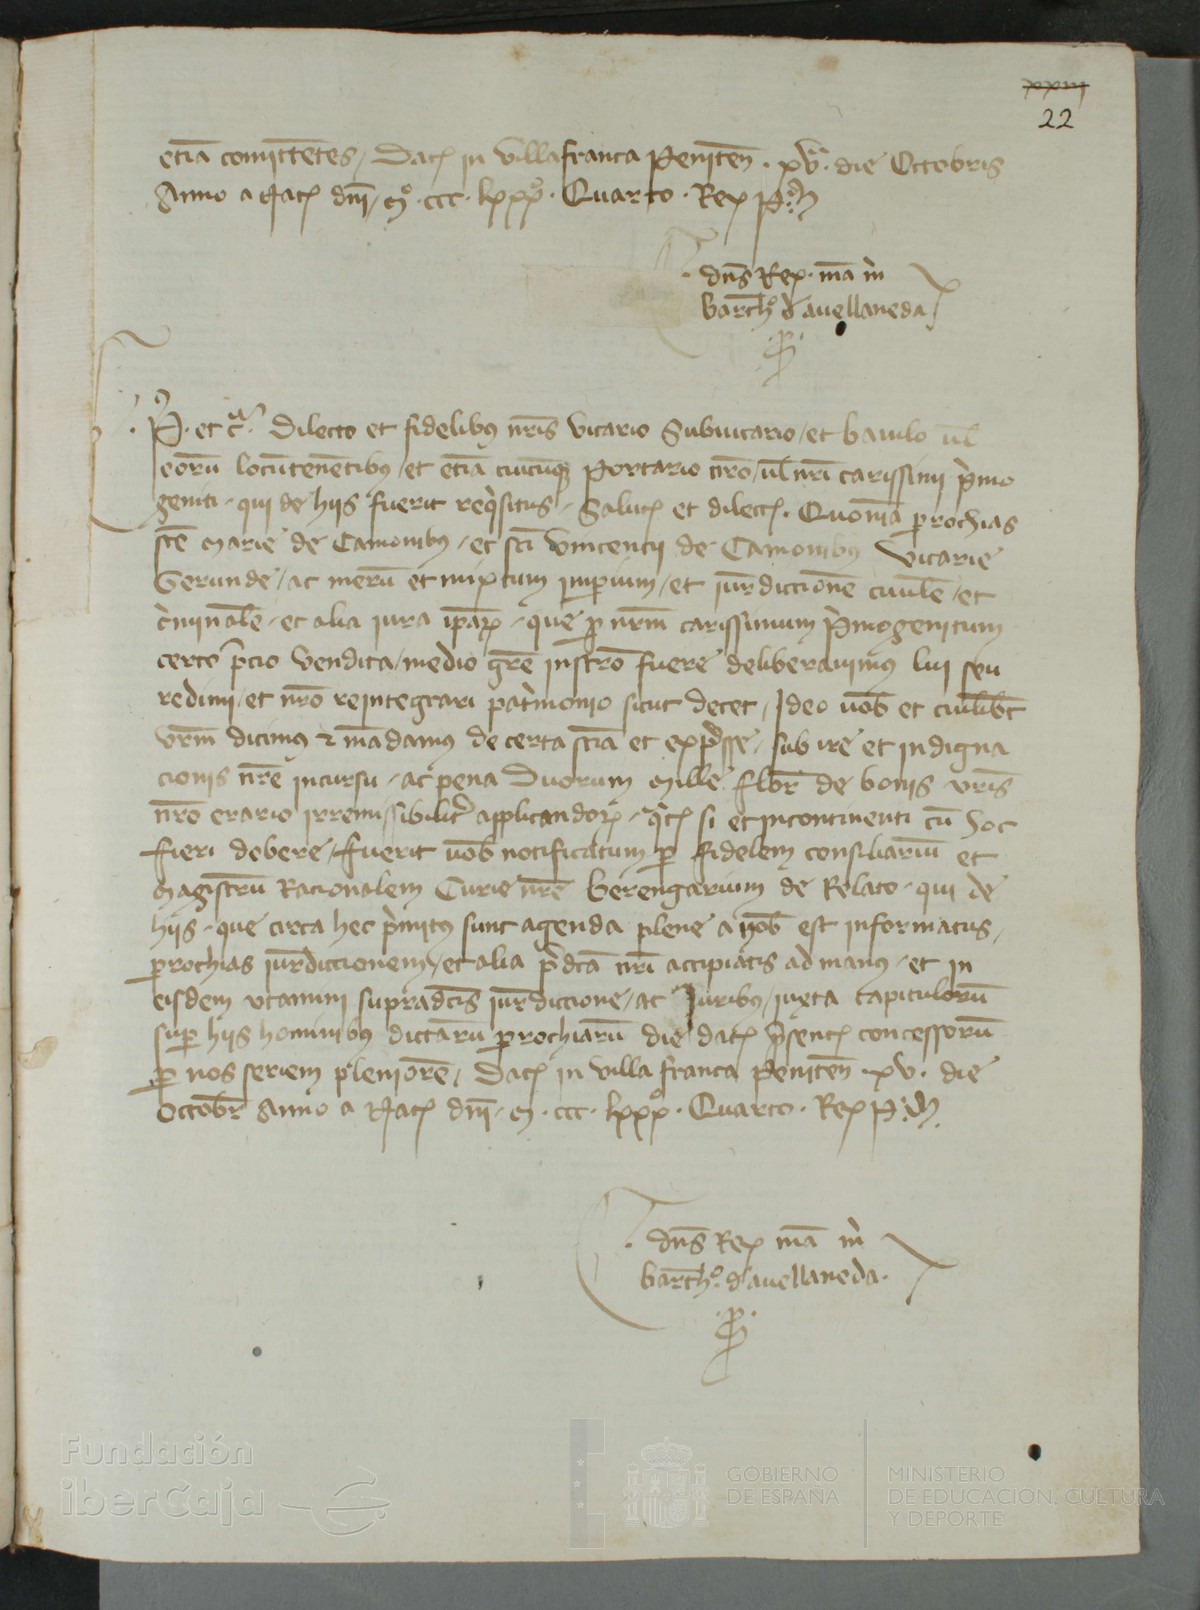 xxiii
22
etiā comittētes / Dat̄ in villafranca Peniteñ · xvª · die Octobris
Anno a Nat̄ dn̄i / Mº · ccc · lxxxº · Quarto · Rex P.
dn̄s Rex · mā m̄
barthº d auellaneda
P · et cª · Dilecto et fidelibꝯ nr̄is vicario Subuicario / et baiulo ūl
eorū locūtenētibꝯ / et etiā cuicūqꝫ portario nr̄o / ūl nr̄i carissimi p̄mo
geniti · qui de hijs fuerit req̄situs / Salut̄ et dilect̄ · Quoniā ꝑrochias
sc̄e Marie de Camonibꝯ / et sc̄i vincentij de Camonibꝯ vicarie
Gerunde / ac merū et mixtum imꝑium / et iur̄diccionē ciuilē / et
c̄minalē · et alia iura ip̄aꝝ · que ꝑ nr̄m carissimum P̄mogenitum
certo p̄cio vendita / medio gr̄e instr̄o fuere deliberauimꝯ lui seu
redimi / et nr̄o reintegrari pat̄monio sicut decet / Ideo uob̄ et cuilib̄t
vr̄m dicimꝯ ⁊ mādamꝯ de certa sc̄ia et exp̄sse / sub ire et indigna
cionis nr̄e incursu · ac pena Duorum mille flor̄ de bonis vr̄is
nr̄o erario irremissibilit̄ applicandoꝝ · q̄t̄ si et incontinenti cū hoc
fieri debere / fuerit uob̄ notificatum ꝑ fidelem consiliariū et
Magistrū Racionalem Curie nr̄e Berengarium de Relato · qui de
hijs · que circa hec p̄mitꝯ sunt agenda plene a nob̄ est informatus /
ꝑrochias iur̄diccionem / et alia p̄dc̄a nr̄i accipiatis ad manꝯ / et in
eisdem vtamini supradc̄is iur̄diccione / ac Iuribꝯ / iuxta capitulorū
suꝑ hijs hominibꝯ dictarū ꝑrochiarū die dat̄ p̄sent̄ concessorū
ꝑ nos seriem pleniorē / Dat̄ in villa franca Peniteñ · xv · die
Octobr̄ Anno a Nat̄ dn̄i · M · ccc · lxxxº · Quarto · Rex P.
dn̄s Rex mā m̄
barthº · d auellaneda ·
Fundación
iberCaja
GOBIERNO
DE ESPAÑA
MINISTERIO
DE EDUCACIÓN, CULTURA
Y DEPORTE